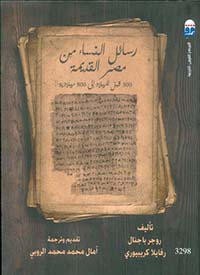 رسائل النساء من
مصر القديمة
300 قبل الميلاد إلى 800 ميلادية
تأليف
روجر باجنال
رفايلا كريبيوري
تقديم وترجمة
آمال محمد محمد الروبي
3298